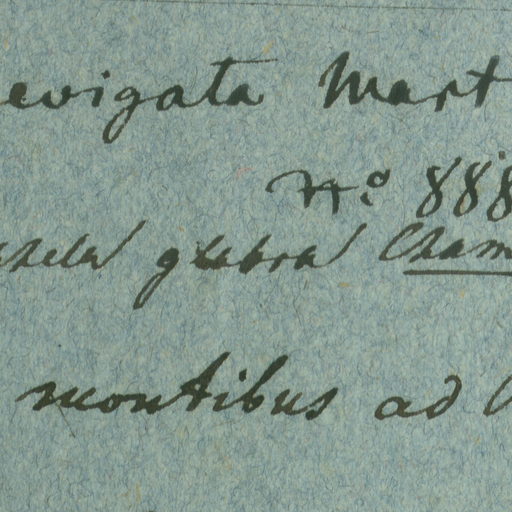 evigata Mart
No. 888
glabra Cham
montibus ad